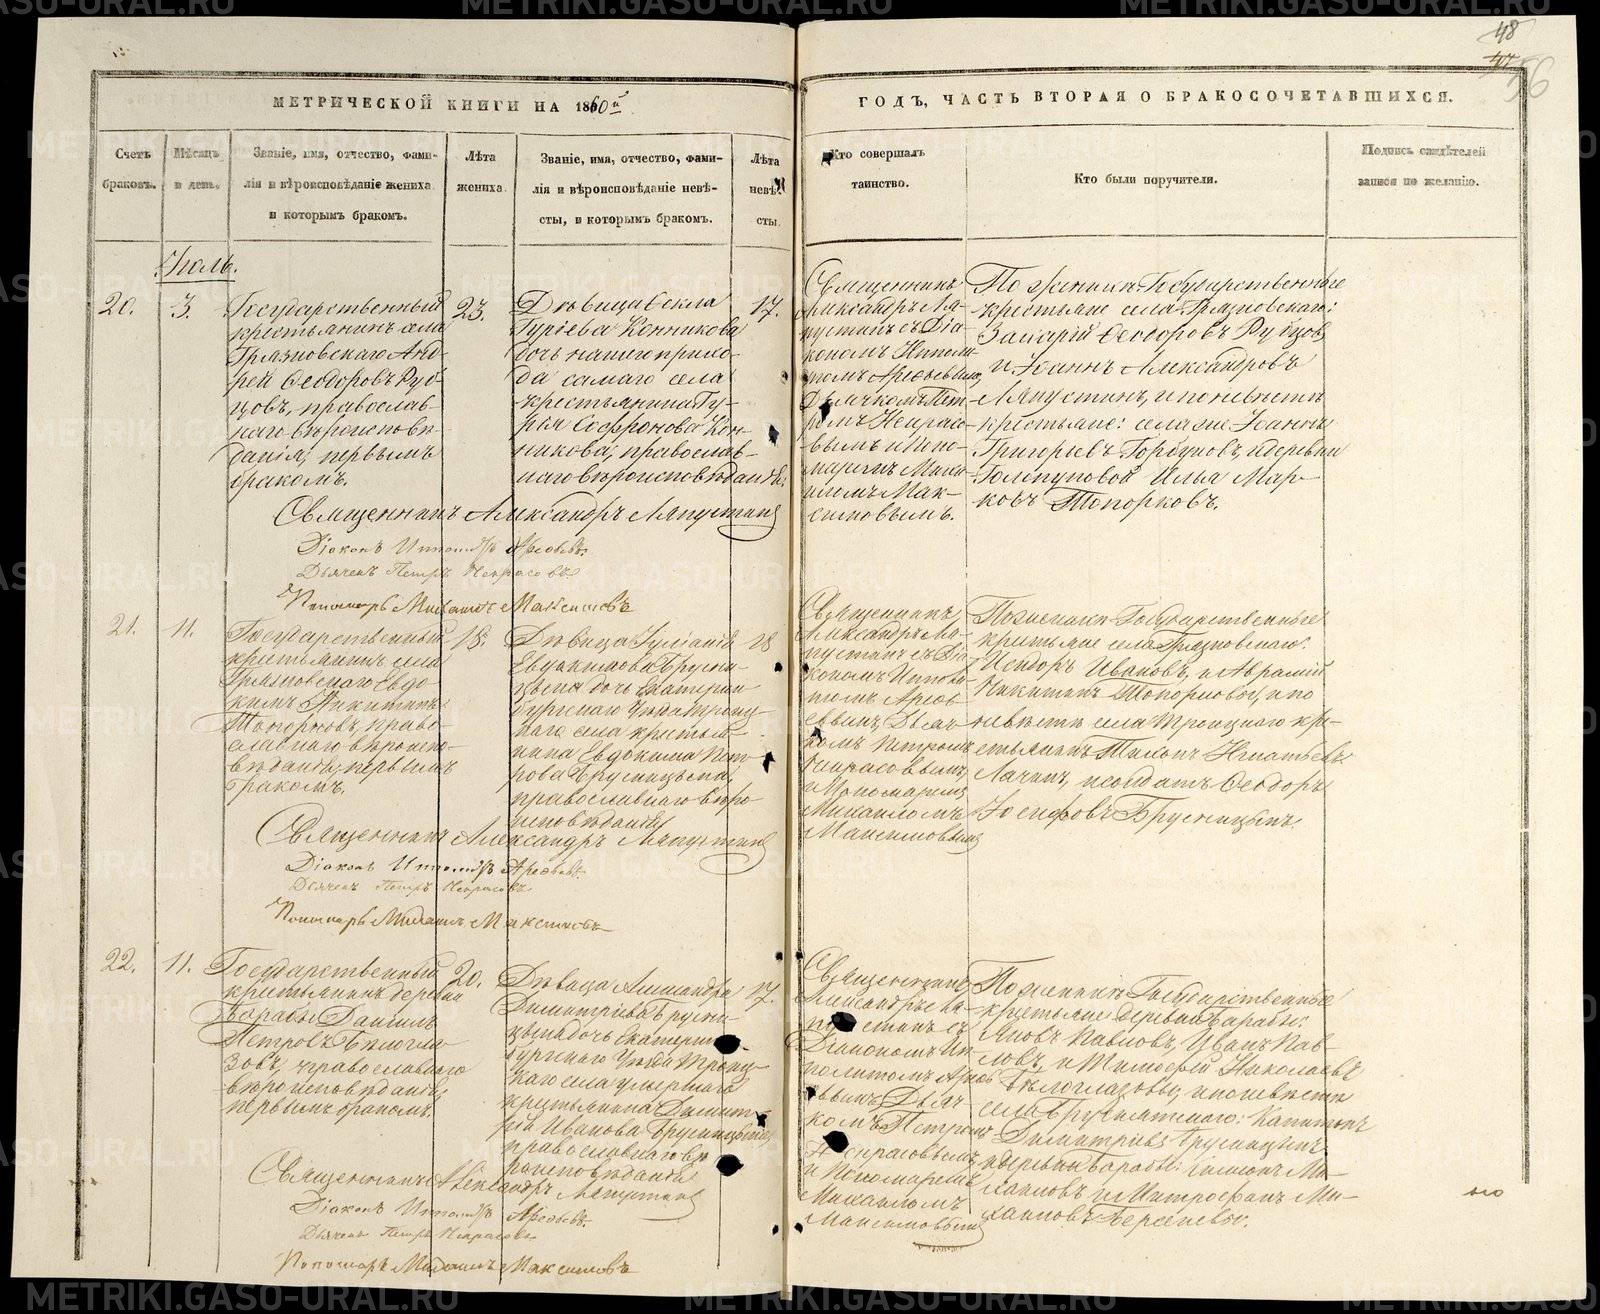 48
47
56
МЕТРИЧЕСКОЙ КНИГИ НА 1860й
ГОДЪ, ЧАСТЬ ВТОРАЯ О БРАКОСОЧЕТАВШИХСЯ.
Счетъ браковъ.
Мѣсяцъ и день.
Званіе, имя, отчество, фами-
лія и вѣроисповѣданіе жениха
и которымъ бракомъ.
Лѣта
жениха
Званіе, имя, отчество, фами-
лія и вѣроисповѣданіе невѣ-
сты, и которымъ бракомъ.
Лѣта
невѣ-
сты.
Кто совершалъ
таинство.
Кто были поручители.
Подпись свидѣтелей
записи по желанію.
Іюль.
20.
3.
Государственный
крестьянинъ села
Грязновскаго Анд-
рей Ѳеодоровъ Руб-
цовъ, православ-
наго вѣроисповѣ-
данія, первымъ
бракомъ.
23.
Дѣвица Ѳекла
Гуріева Конникова
дочь нашего прихо-
да самаго села
крестьянина Гу-
рія Софронова Кон-
никова, православ-
наго вѣроисповѣданія.
17.
Священникъ
Александръ Ля-
пустинъ съ Діа-
кономъ Иполи-
томъ Арефьевымъ,
Дьячкомъ Пет-
ромъ Некрасо-
вымъ и Поно-
маремъ Миха-
иломъ Мак-
симовымъ.
По женихѣ Государственные
крестьяне села Грязновскаго:
Захарій Ѳеодоровъ Рубцовъ
и Іоаннъ Александровъ
Ляпустинъ, и по невѣстѣ
крестьяне: села же Іоаннъ
Григорьевъ Горбуновъ, и деревни
Голопуповой Илья Мар-
ковъ Топорковъ.
Священникъ Александръ Ляпустинъ
Діаконъ Ипполитъ Арефьевъ.
Дьячекъ Петръ Некрасовъ
Пономарь Михаилъ Максимовъ
21.
11.
Государственный
крестьянинъ села
Грязновскаго Евдо-
кимъ Никитинъ
Топорковъ, право-
славнаго вѣроиспо-
вѣданія, первымъ
бракомъ.
18.
Дѣвица Іуліанія
Евдокимова Брусни-
цына дочь Екатерин-
бургскаго Уѣзда Троиц-
каго села крестья-
нина Евдокима Пет-
рова Брусницына,
православнаго вѣро
исповѣданія
18
Священникъ
Александръ Ля-
пустинъ съ Діа-
кономъ Ипполи-
томъ Арефь-
евымъ, Дьяч-
комъ Петромъ
Некрасовымъ,
и Пономаремъ
Михаиломъ
Максимовымъ
По женихѣ Государственные
крестьяне села Грязновскаго:
Исидоръ Ивановъ, и Аврамій
Никитинъ Топорковы, и по
невѣстѣ села Троицкаго кре-
стьянинъ Тихонъ Игнатьевъ
Лачинъ, и солдатъ Ѳеодоръ
Іосифовъ Брусницынъ.
Священникъ Александръ Ляпустинъ
Діаконъ Ипполитъ Арефьевъ.
Дьячекъ Петръ Некрасовъ
Пономарь Михаилъ Максимовъ
22.
11.
Государственный
крестьянинъ деревни
Барабы Даніилъ
Петровъ Бѣлогла-
зовъ, православнаго
вѣроисповѣданія,
первымъ бракомъ.
20.
Дѣвица Александра
Димитріева Брусни-
цына дочь Екатерин-
бургскаго Уѣзда Троиц-
каго села умершаго
крестьянина Димит-
рія Иванова Брусницына,
православнаго вѣ-
роисповѣданія
17.
Священникъ
Александръ Ля-
пустинъ съ
Діакономъ Ип-
политомъ Арефь-
евымъ Дьяч-
комъ Петромъ
Некрасовымъ,
и Пономаремъ
Михаиломъ
Максимовымъ
По женихѣ Государственные
крестьяне деревни Барабы:
Яковъ Павловъ, Иванъ Пав-
ловъ, и Тимоѳей Николаевъ
Бѣлоглазовы, и по невѣстѣ
села Бруснятскаго: Капитонъ
Димитріевъ Брусницынъ,
и деревни Барабы: Ми-
хаиловъ и Митрофанъ Ми-
хаиловъ Берсеневы.
Священникъ Александръ Ляпустинъ
Діаконъ Ипполитъ Арефьевъ.
Дьячекъ Петръ Некрасовъ
Пономарь Михаилъ Максимовъ
METRIKI.GASO-URAL.RU